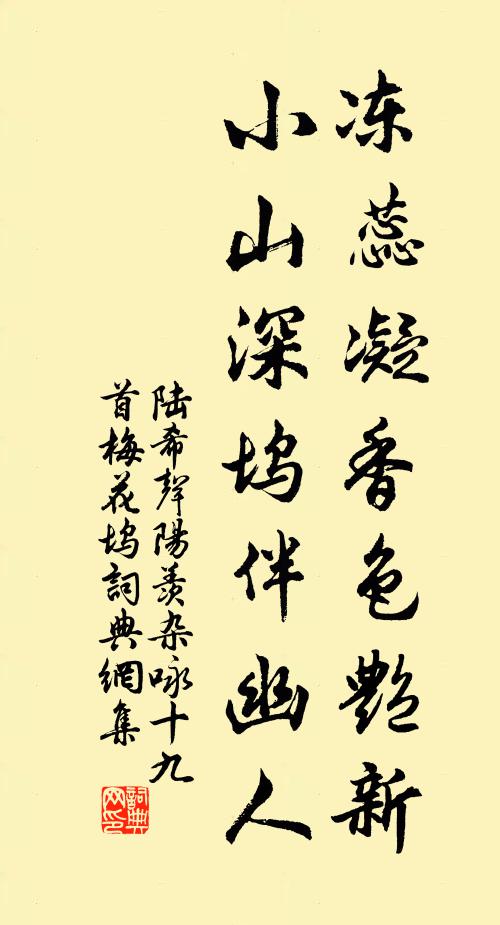 冻蕊凝香色艳新
小山深坞伴幽人
陆希聲陽羡杂咏十九
首梅花坞詞典網集
詞典
网印